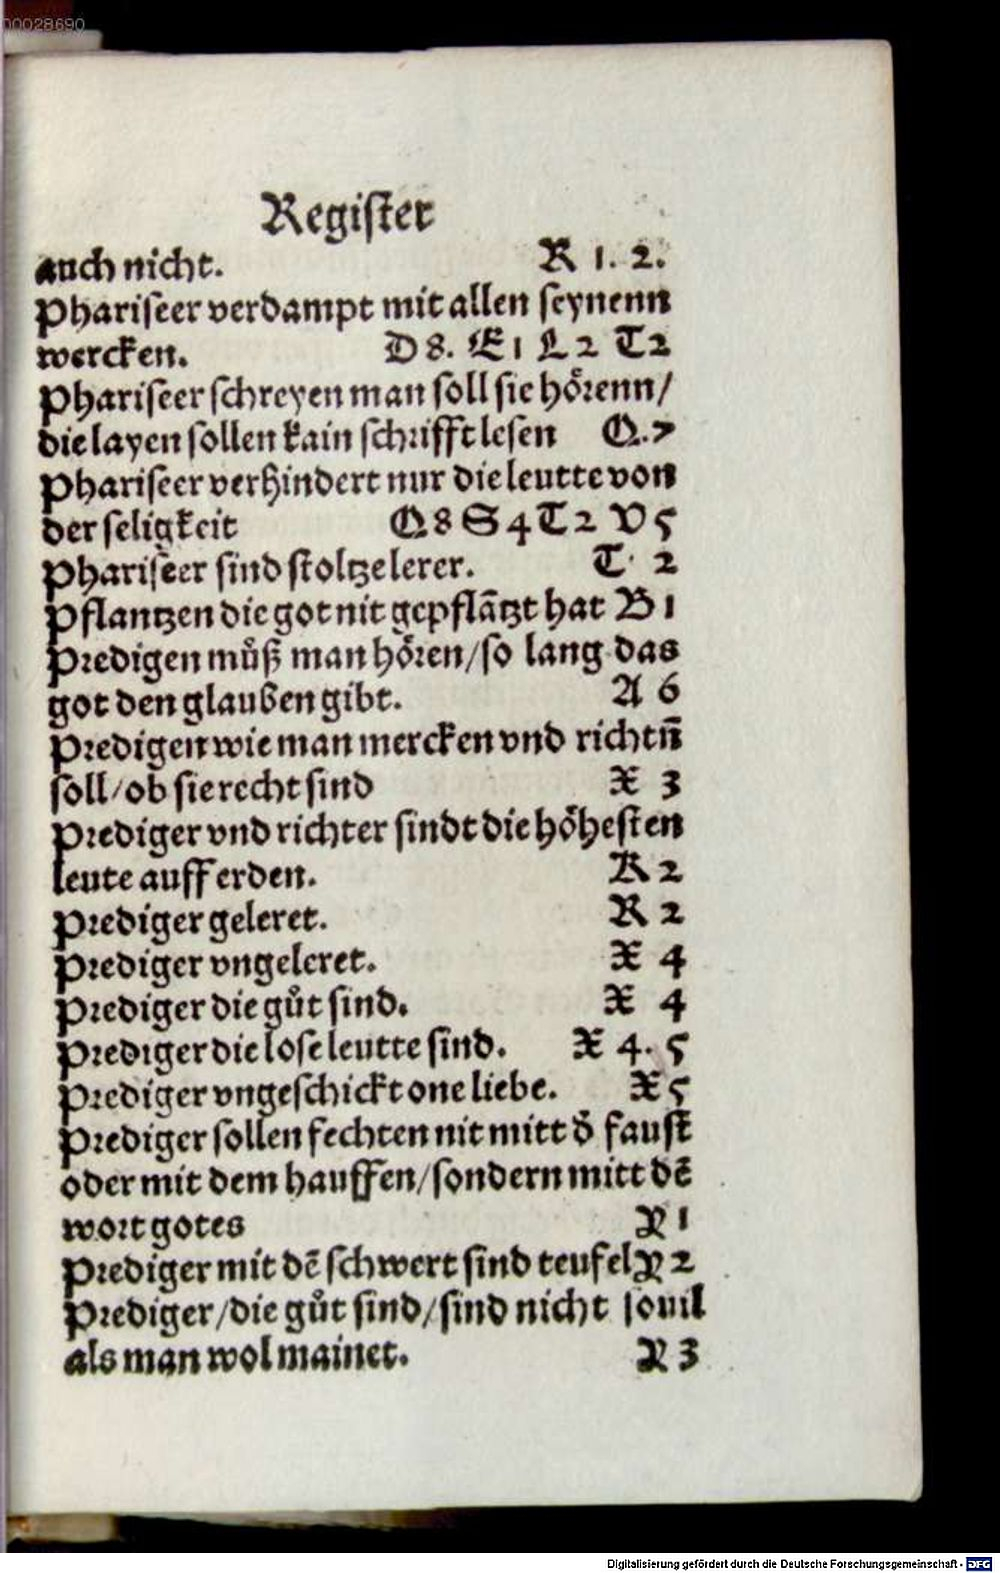 00028690
Register
auch nicht. R 1. 2.
Phariseer verdampt mit allen seynenn
wercken. D 8. E 1 L 2 T 2
Phariseer schreyen man soll sie hörenn/
die layen sollen kain schrifft lesen Q. 7
Phariseer verhindert nur die leutte von
der seligkeit Q 8 S 4 T 2 V 5
Phariseer sind stoltze lerer. T 2
Pflantzen die got nit gepflātzt hat B 1
Predigen můß man hören/so lang das
got den glauben gibt. A 6
Predigen wie man mercken vnd richtn̄
soll/ob sie recht sind X 3
Prediger vnd richter sindt die höhesten
leute auff erden. K 2
Prediger geleret. R 2
Prediger vngeleret. X 4
Prediger die gůt sind. X 4
Prediger die lose leutte sind. X 4. 5
Prediger vngeschickt one liebe. X 5
Prediger sollen fechten nit mitt d̄ faust
oder mit dem hauffen/sondern mitt dē
wort gotes Y 1
Prediger mit dē schwert sind teufel Y 2
Prediger/die gůt sind/sind nicht souil
als man wol mainet. Y 3
Digitalisierung gefördert durch die Deutsche Forschungsgemeinschaft - DFG